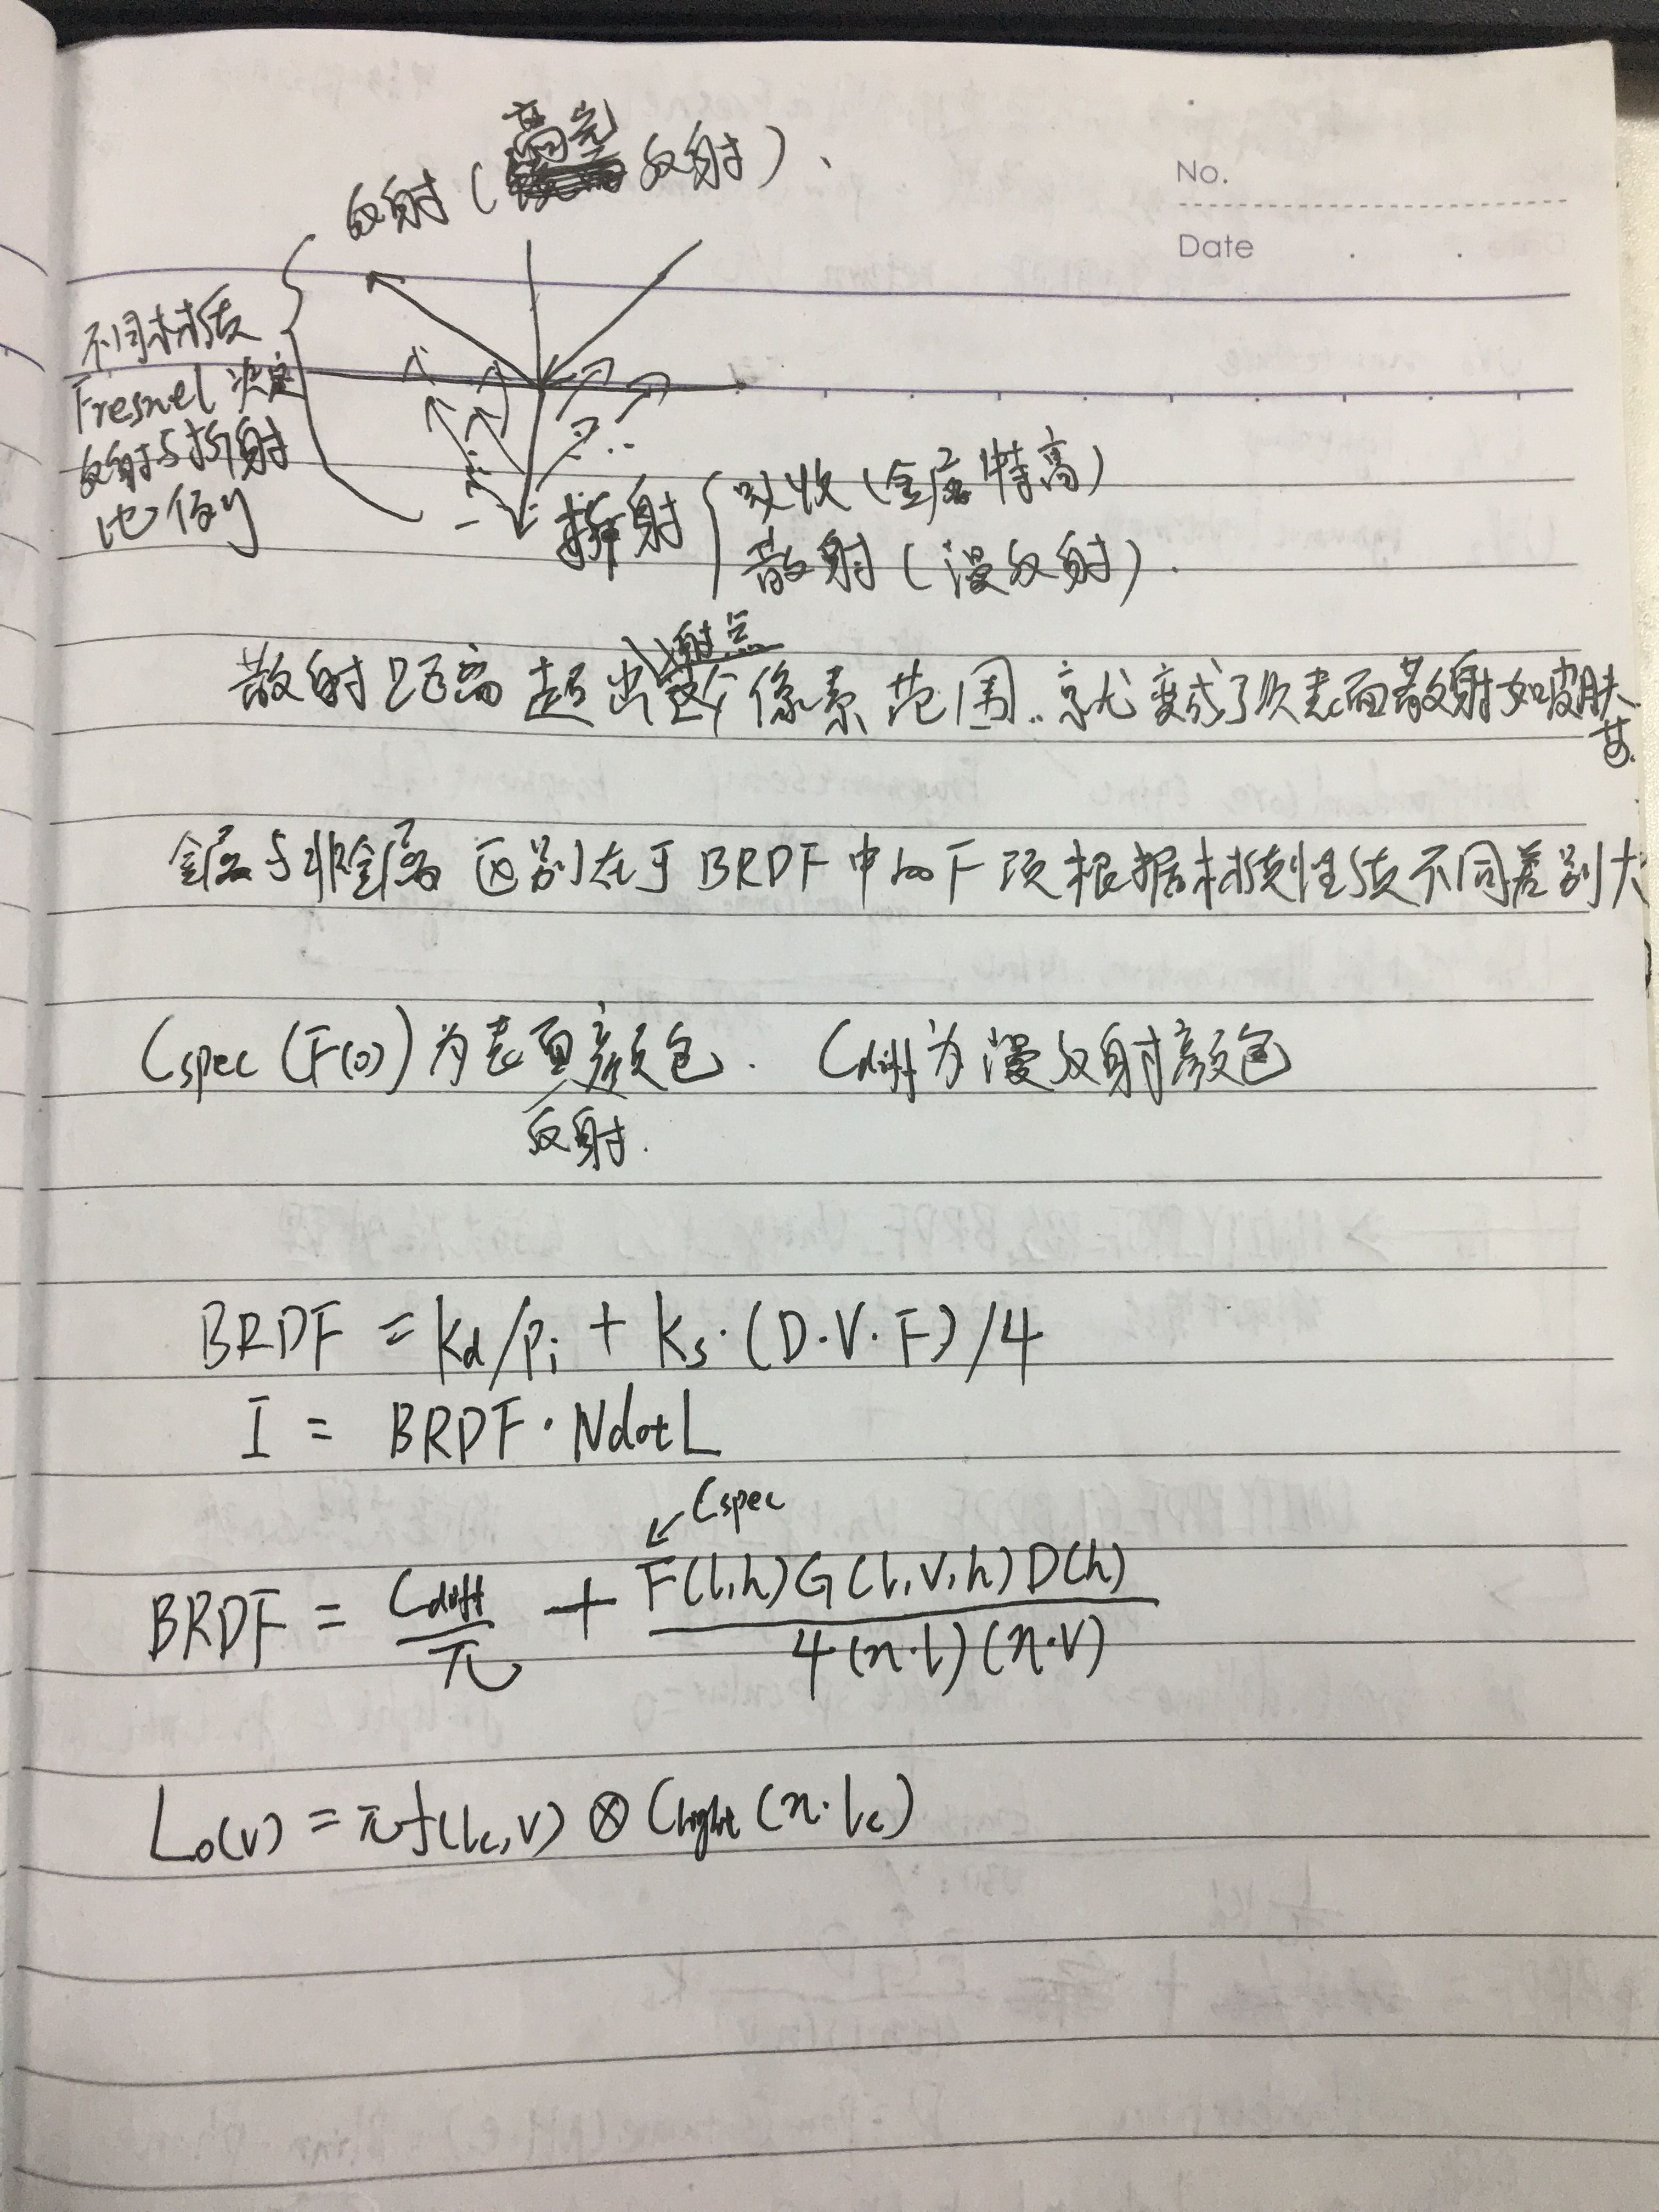 反射(高光反射)、
No.
Date
不同材质
Fresnel 决定
反射与折射
比例
折射
吸收(金属特高)
散射(漫反射).
入射点
散射距离超出这个像素范围..就变成了次表面散射如皮肤
金属与非金属 区别在于BRDF中的F项根据材质性质不同差别大
Cspec(F(0))为表面颜色. Cdiff为漫反射颜色
反射.
BRDF = kd/pi + ks·(D·V·F)/4
I = BRDF·NdotL
↙ Cspec
BRDF = Cdiff/π + F(l,h)G(l,v,h)D(h) / 4(n·l)(n·v)
Lo(v) = πf(lc,v) ⊗ Clight(n·lc)